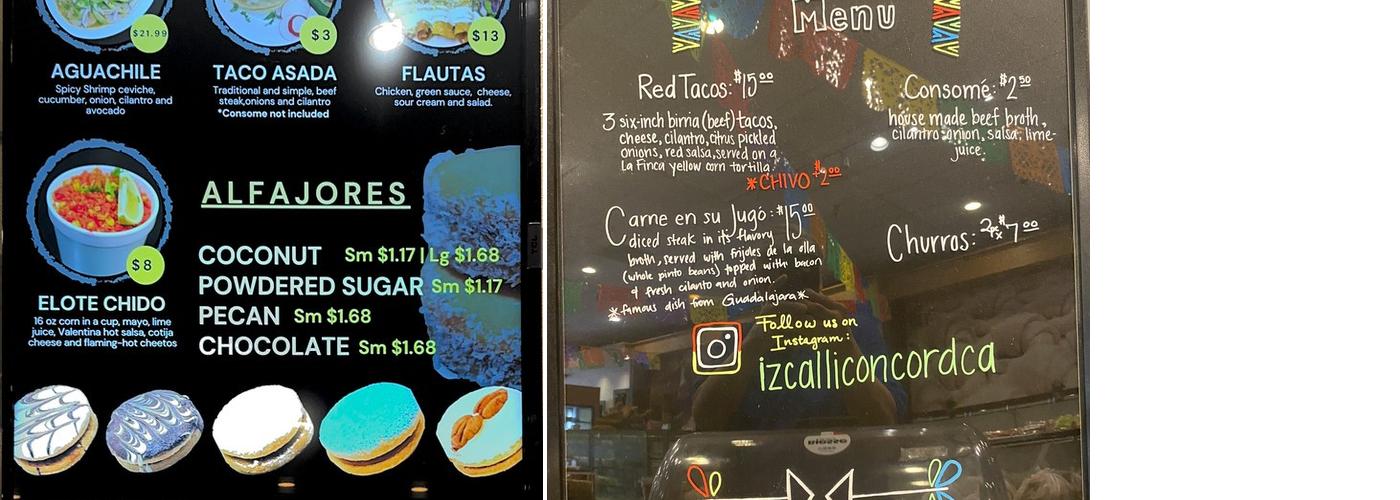 $21.99
$3
$13
AGUACHILE
Spicy Shrimp ceviche,
cucumber, onion, cilantro and
avocado
TACO ASADA
Traditional and simple, beef
steak,onions and cilantro
*Consome not included
FLAUTAS
Chicken, green sauce, cheese,
sour cream and salad.
$8
ELOTE CHIDO
16 oz corn in a cup, mayo, lime
juice, Valentina hot salsa, cotija
cheese and flaming-hot cheetos
ALFAJORES
COCONUT Sm $1.17 | Lg $1.68
POWDERED SUGAR Sm $1.17
PECAN Sm $1.68
CHOCOLATE Sm $1.68
Menu
Red Tacos: $15.00
3 six-inch birria (beef) tacos,
cheese, cilantro, citrus pickled
onions, red salsa, served on a
La Finca yellow corn tortilla.
*CHIVO $2.00
Carne en su Jugo: $15.00
diced steak in its flavory
broth, served with frijoles de la olla
(whole pinto beans) topped with bacon
& fresh cilanto and onion.
*famous dish from Guadalajara*
Consomé: $2.50
house made beef broth,
cilantro-onion, salsa, lime-
juice.
Churros: 2pc x $7.00
Follow us on
Instagram:
izcalliconcordca